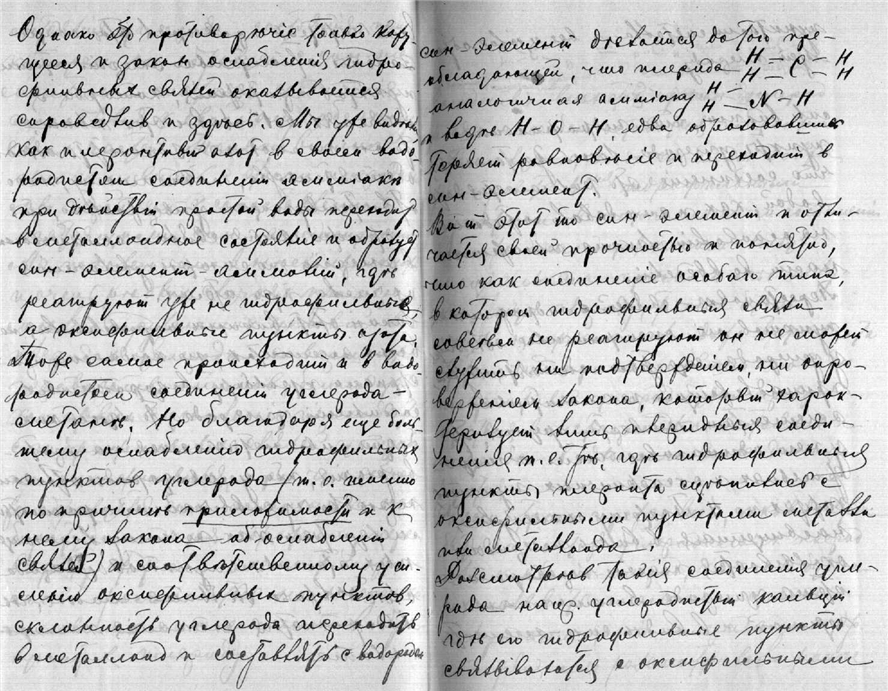 Однако это противорѣчiе только кажу-
щееся и законъ ослабленiя гидро-
фильныхъ связей оказывается
справедливъ и здѣсь. Мы уже видѣли
какъ плеронтивый азотъ въ своемъ водо-
родистомъ соединенiи аммiакѣ
при дѣйствiи простой воды переходитъ
въ металлоидное состоянiе и образуетъ
син-элементъ-аммонiй, гдѣ
реагируютъ уже не гидрофильные,
а оксифильные пункты азота.
Тоже самое происходитъ и въ водо-
родистомъ соединенiи углерода-
метанѣ. Но благодаря еще боль-
шему ослабленiю гидрофильныхъ
пунктовъ углерода (т.е. именно
по причинѣ приложимости и къ
нему закона объ ослабленiи
связей) и соотвѣтственному уси-
ленiю оксифильныхъ пунктовъ,
склонность углерода переходить
въ металлоид и составлять съ водородом
син-элементъ дѣлается до того пре-
обладающей, что плерида H – C – H H – H
аналогичная аммiаку H H – N – H
и водѣ H – O – H, едва образовавшись
теряетъ равновѣсiе и переходитъ въ
син-элементъ.
Вотъ этотъ то син-элементъ и отли-
чается своей прочностью и понятно,
что какъ соединенiе особаго типа,
въ которомъ гидрофильныя связи
совсѣмъ не реагируютъ онъ не можетъ
служить ни подтвержденiемъ, ни опро-
верженiемъ закона, который харак-
теризуетъ лишь плеридныя соеди-
ненiя т.е. тѣ, гдѣ гидрофильные
пункты плеронта сцѣпились съ
оксифильными пунктами металла
или металлоида.
Разсмотрѣвъ такiя соединенiя угле-
рода напр. углеродистый кальцiй
гдѣ его гидрофильные пункты
связываются съ оксифильными